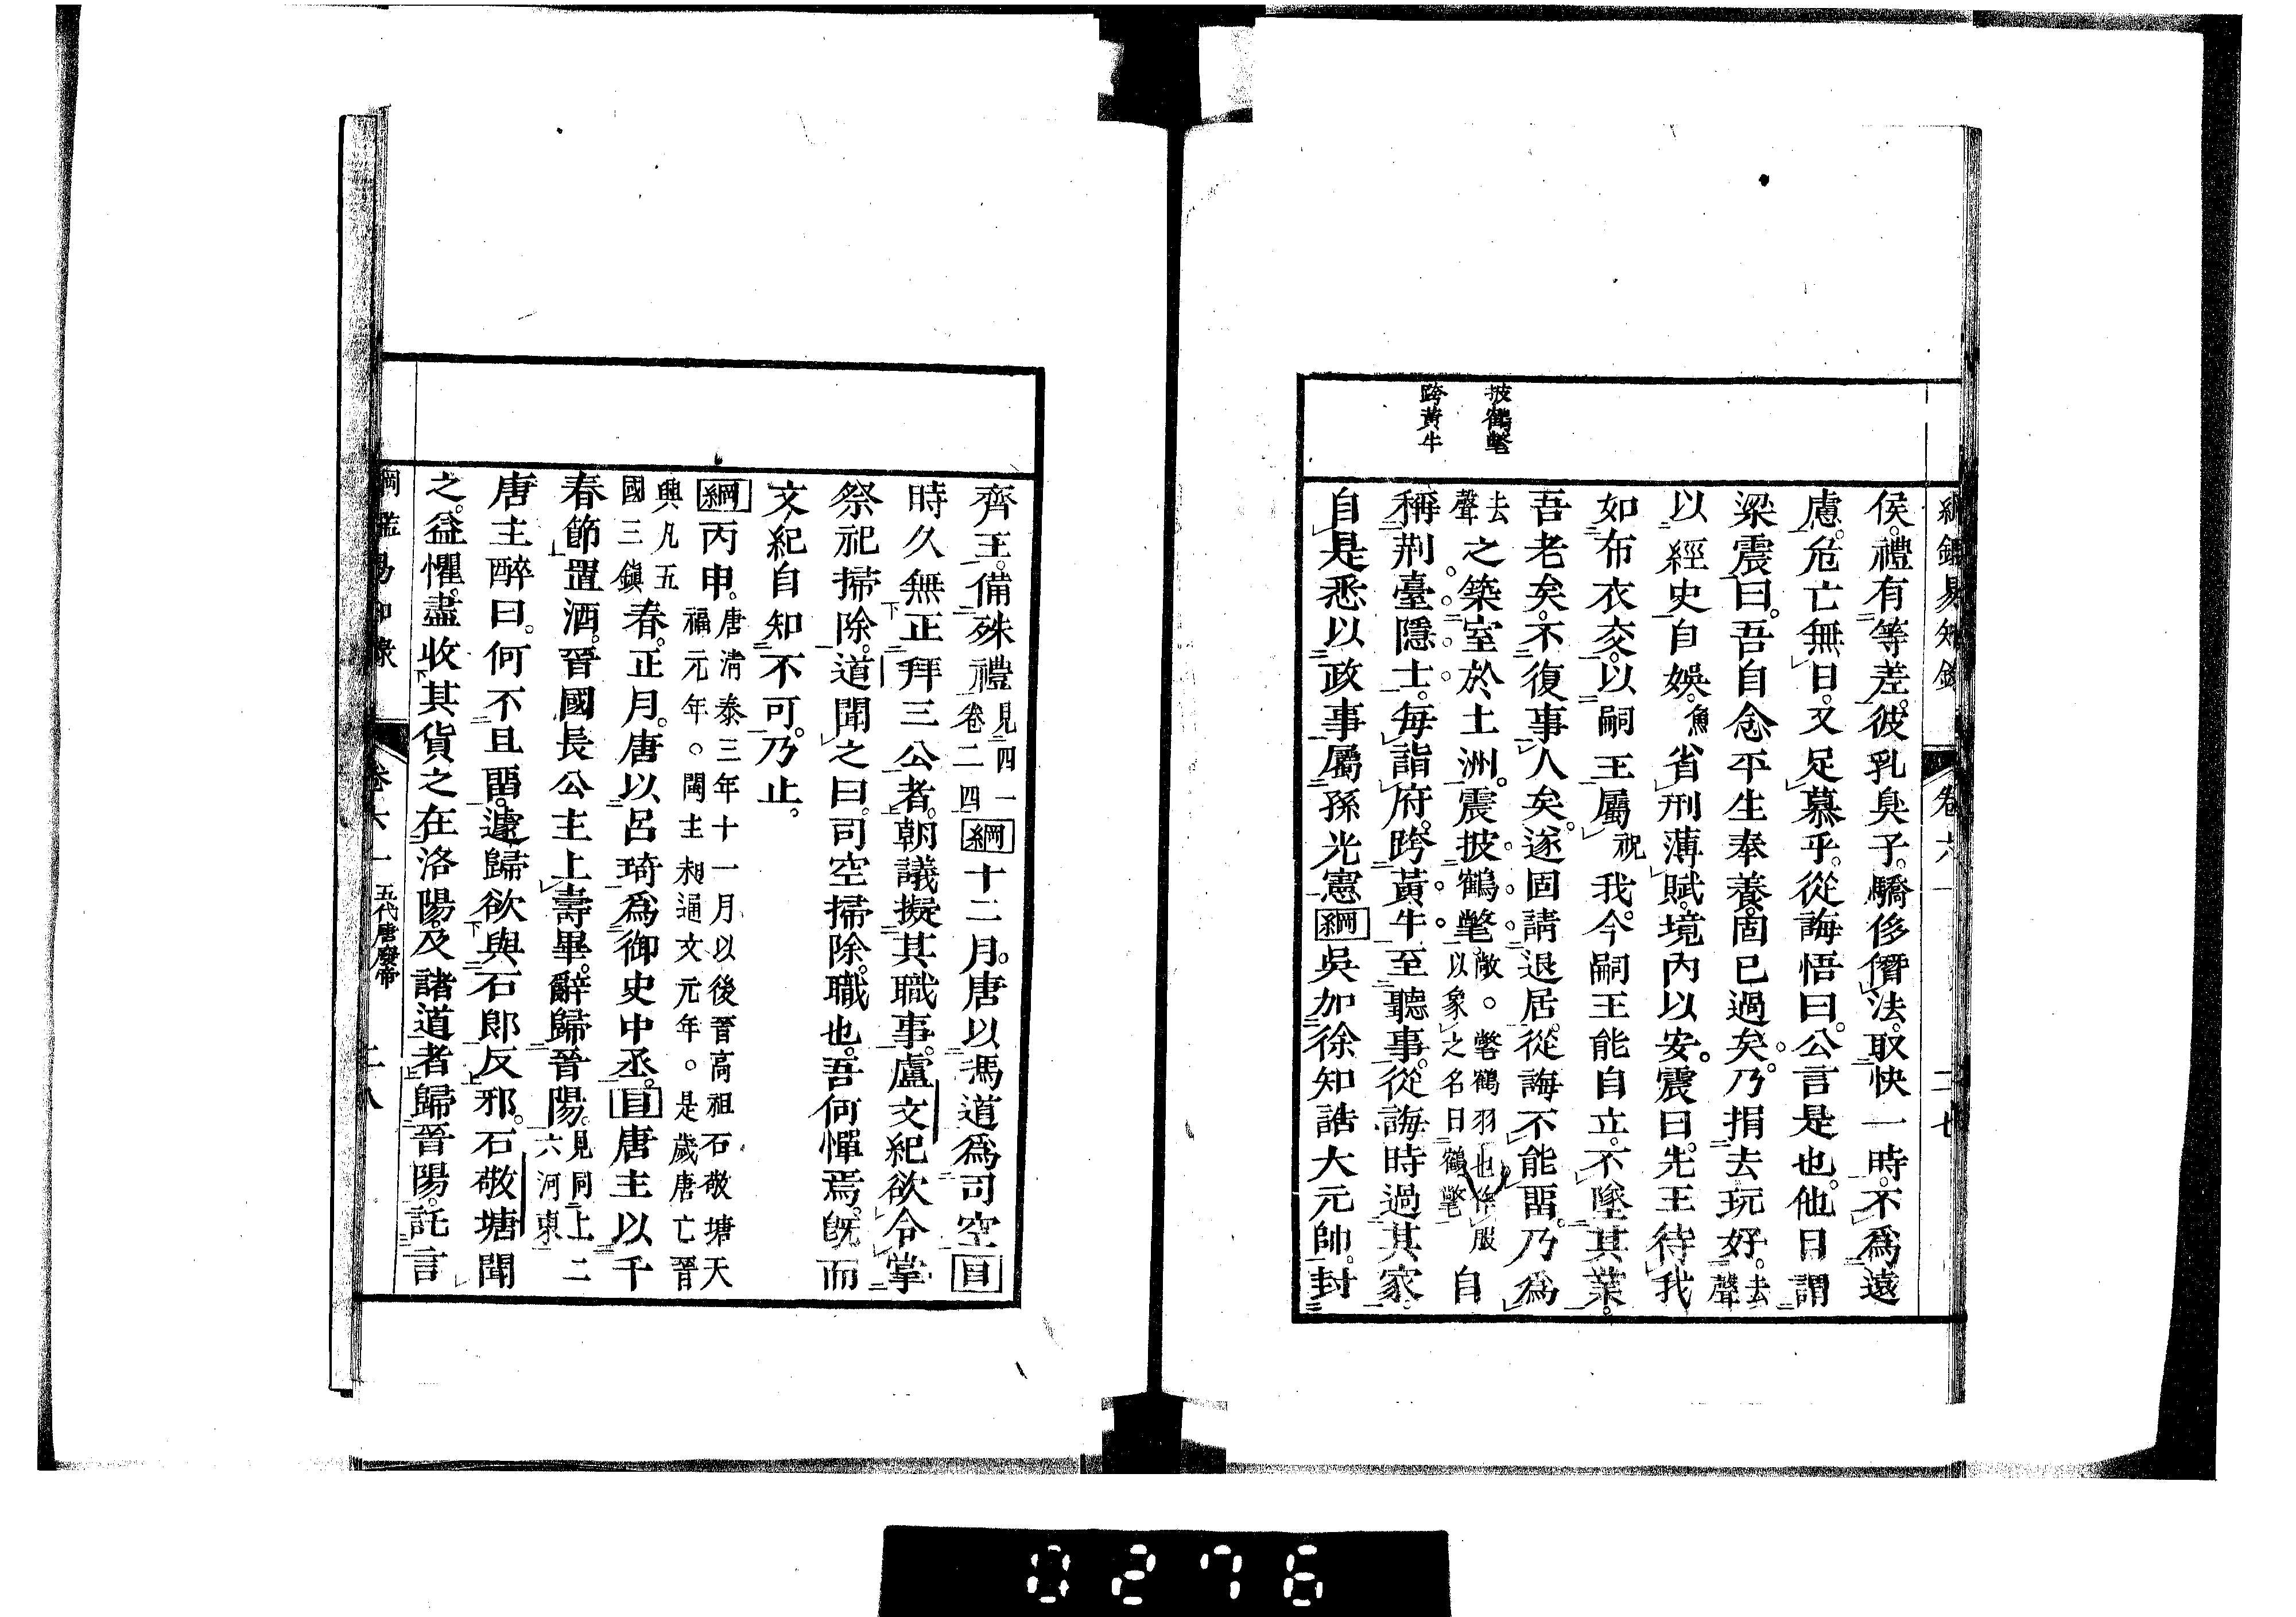 綱鑑易知錄 卷六一 二七
披鶴氅
跨黃牛
侯。禮有等差。彼乳臭子。驕侈僭法。取快一時。不爲遠
慮。危亡無日。又足慕乎。從誨悟曰。公言是也。他日謂
梁震曰。吾自念平生奉養。固已過矣。乃捐去玩好。去聲
以經史自娛。魚省刑薄賦。境內以安。震曰。先王待我
如布衣交。以嗣王屬祝我。今嗣王能自立。不墜其業。
吾老矣。不復事人矣。遂固請退居。從誨不能畱。乃爲
去聲之築室於土洲。震披鶴氅。敞。氅鶴羽也。依服以象之名曰鶴氅自
稱荆臺隱士。每詣府。跨黃牛至聽事。從誨時過其家。
自是悉以政事屬孫光憲綱吳加徐知誥大元帥。封
齊王。備殊禮見四一卷二四綱十二月。唐以馮道爲司空目
時久無正拜三公者。朝議擬其職事。盧文紀欲令掌
祭祀掃除。道聞之曰。司空掃除。職也。吾何憚焉。旣而
文紀自知不可。乃止。
綱丙申。唐淸泰三年十一月以後晉高祖石敬塘天福元年。閩主昶通文元年。是歲唐亡晉
興凡五國三鎭春。正月。唐以呂琦爲御史中丞。目唐主以千
春節置酒。晉國長公主上壽畢。辭歸晉陽。見同上二六河東
唐主醉曰。何不且畱。遽歸欲與石郎反邪。石敬塘聞
之。益懼。盡收其貨之在洛陽。及諸道者歸晉陽。託言
綱鑑易知錄 卷六一 五代唐廢帝 二八
0276